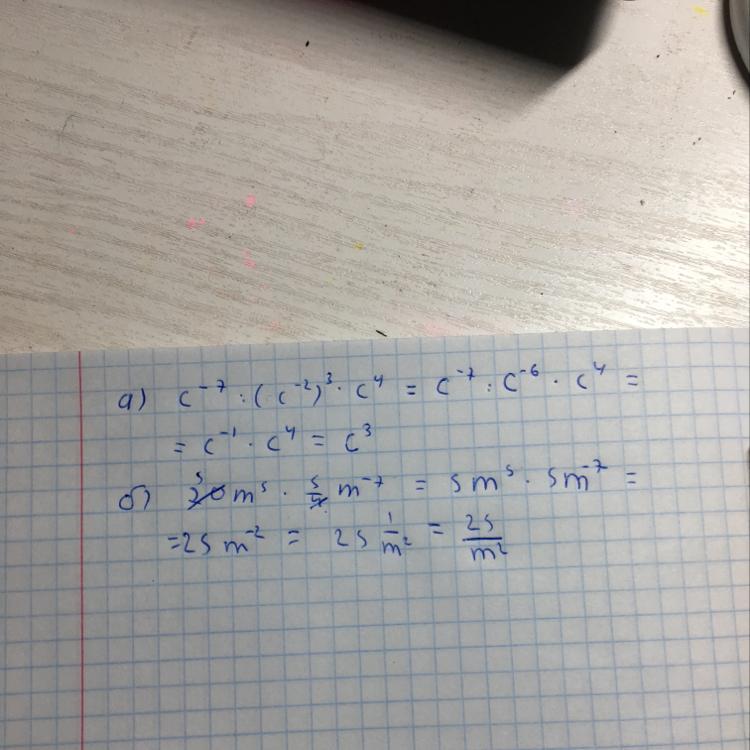 а) c⁻⁷ : (c⁻²)³ · c⁴ = c⁻⁷ : c⁻⁶ · c⁴ =
= c⁻¹ · c⁴ = c³
б) 20m⁵ · 5/4 m⁻⁷ = 5m⁵ · 5m⁻⁷ =
= 25m⁻² = 25 1/m² = 25/m²